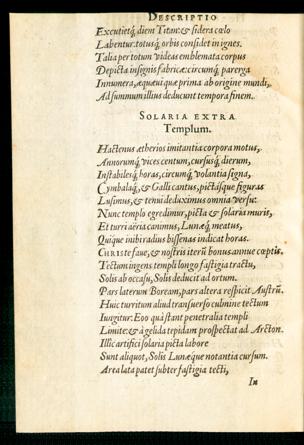 DESCRIPTIO
Excutietq́; diem Titan: & sidera cœlo
Labentur. totusq́; orbis considet in ignes.
Talia per totum videas emblemata corpus
Depicta insignis fabricæ: circumq́; parerga
Innumera, æquæui quæ prima ab origine mundi,
Ad summum illius deducunt tempora finem.
SOLARIA EXTRA
Templum.
Hactenus ætherios imitantia corpora motus,
Annorumq́; vices centum, cursusq́; dierum,
Instabilesq́; horas, circumq́; volantia signa,
Cymbalaq́;, & Galli cantus, pictasque figuras
Lusimus, & tenui deduximus omnia versu:
Nunc templo egredimur, picta & solaria muris,
Et turri aëria canimus, Lunæq́; meatus,
Quique inibi radius bissenas indicat horas.
CHRISTE faue, & nostris iterū bonus annue cœptis.
Tectum ingens templi longo fastigia tractu,
Solis ab occasu, Solis deducit ad ortum.
Pars laterum Boream, pars altera respicit Austrū.
Huic turritum aliud transuerso culmine tectum
Iungitur: Eoo quà stant penetralia templi
Limite: & à gelida tepidam prospectat ad Arcton.
Illic artifici solaria picta labore
Sunt aliquot, Solis Lunæque notantia cursum.
Area lata patet subter fastigia tecti,
In